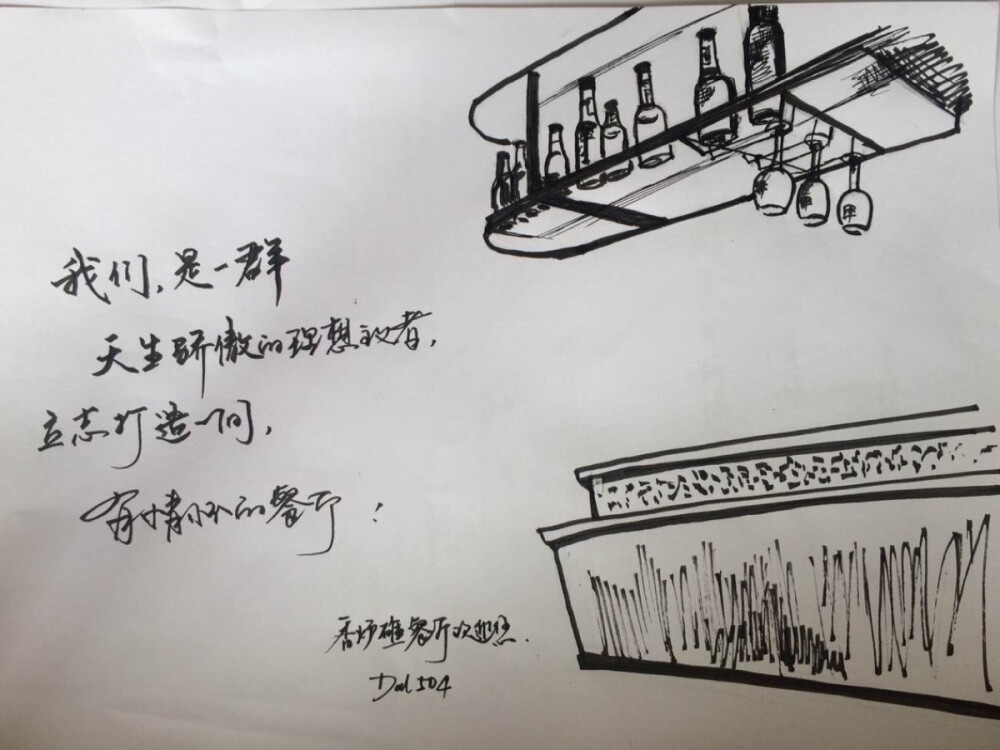 我们，是一群
天生骄傲的理想主义者，
立志打造一间，
有情怀的餐厅！
香炉礁餐厅欢迎您.